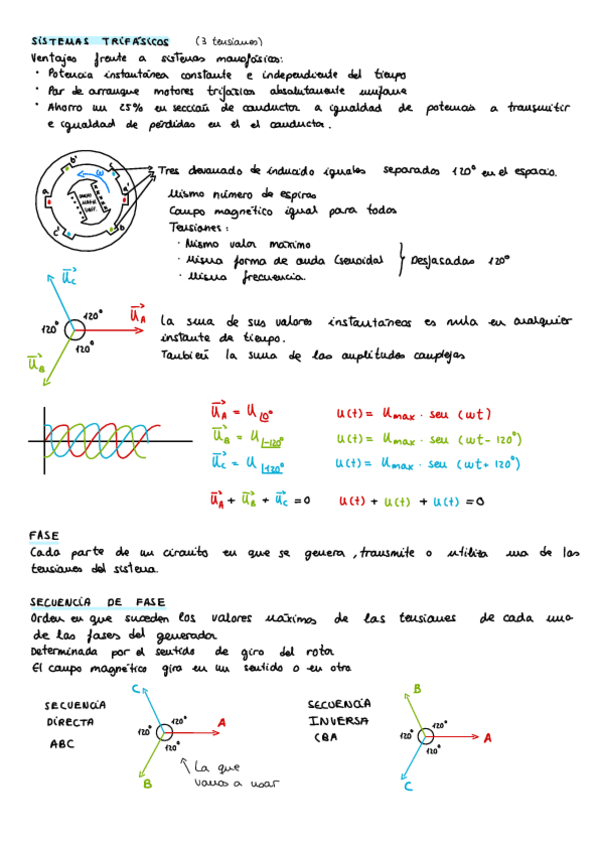 SISTEMAS TRIFÁSICOS (3 tensiones)
Ventajas frente a sistemas monofásicos:
· Potencia instantánea constante e independiente del tiempo
· Par de arranque motores trifásicos absolutamente uniforme
· Ahorro un 25% en sección de conductor a igualdad de potencia a transmitir
e igualdad de pérdidas en el el conductor.
Tres devanado de inducido iguales separados 120° en el espacio.
Mismo número de espiras
Campo magnético igual para todos
Tensiones:
· Mismo valor máximo
· Misma forma de onda (senoidal } Desfasadas 120°
· Misma frecuencia.
b' c a' b c' a
ω
U_C
120° 120° 120°
U_A
U_B
La suma de sus valores instantáneos es nula en cualquier
instante de tiempo.
También la suma de las amplitudes complejas
U_A = U|0° u(t) = Umax · sen (ωt)
U_B = U|-120° u(t) = Umax · sen (ωt - 120°)
U_C = U|120° u(t) = Umax · sen (ωt + 120°)
U_A + U_B + U_C = 0 u(t) + u(t) + u(t) = 0
FASE
Cada parte de un circuito en que se genera, transmite o utiliza una de las
tensiones del sistema.
SECUENCIA DE FASE
Orden en que suceden los valores máximos de las tensiones de cada una
de las fases del generador
Determinada por el sentido de giro del rotor
El campo magnético gira en un sentido o en otro
SECUENCIA
DIRECTA
ABC
C
120° 120° 120°
A
B
La que
vamos a usar
SECUENCIA
INVERSA
CBA
B
120° 120° 120°
A
C